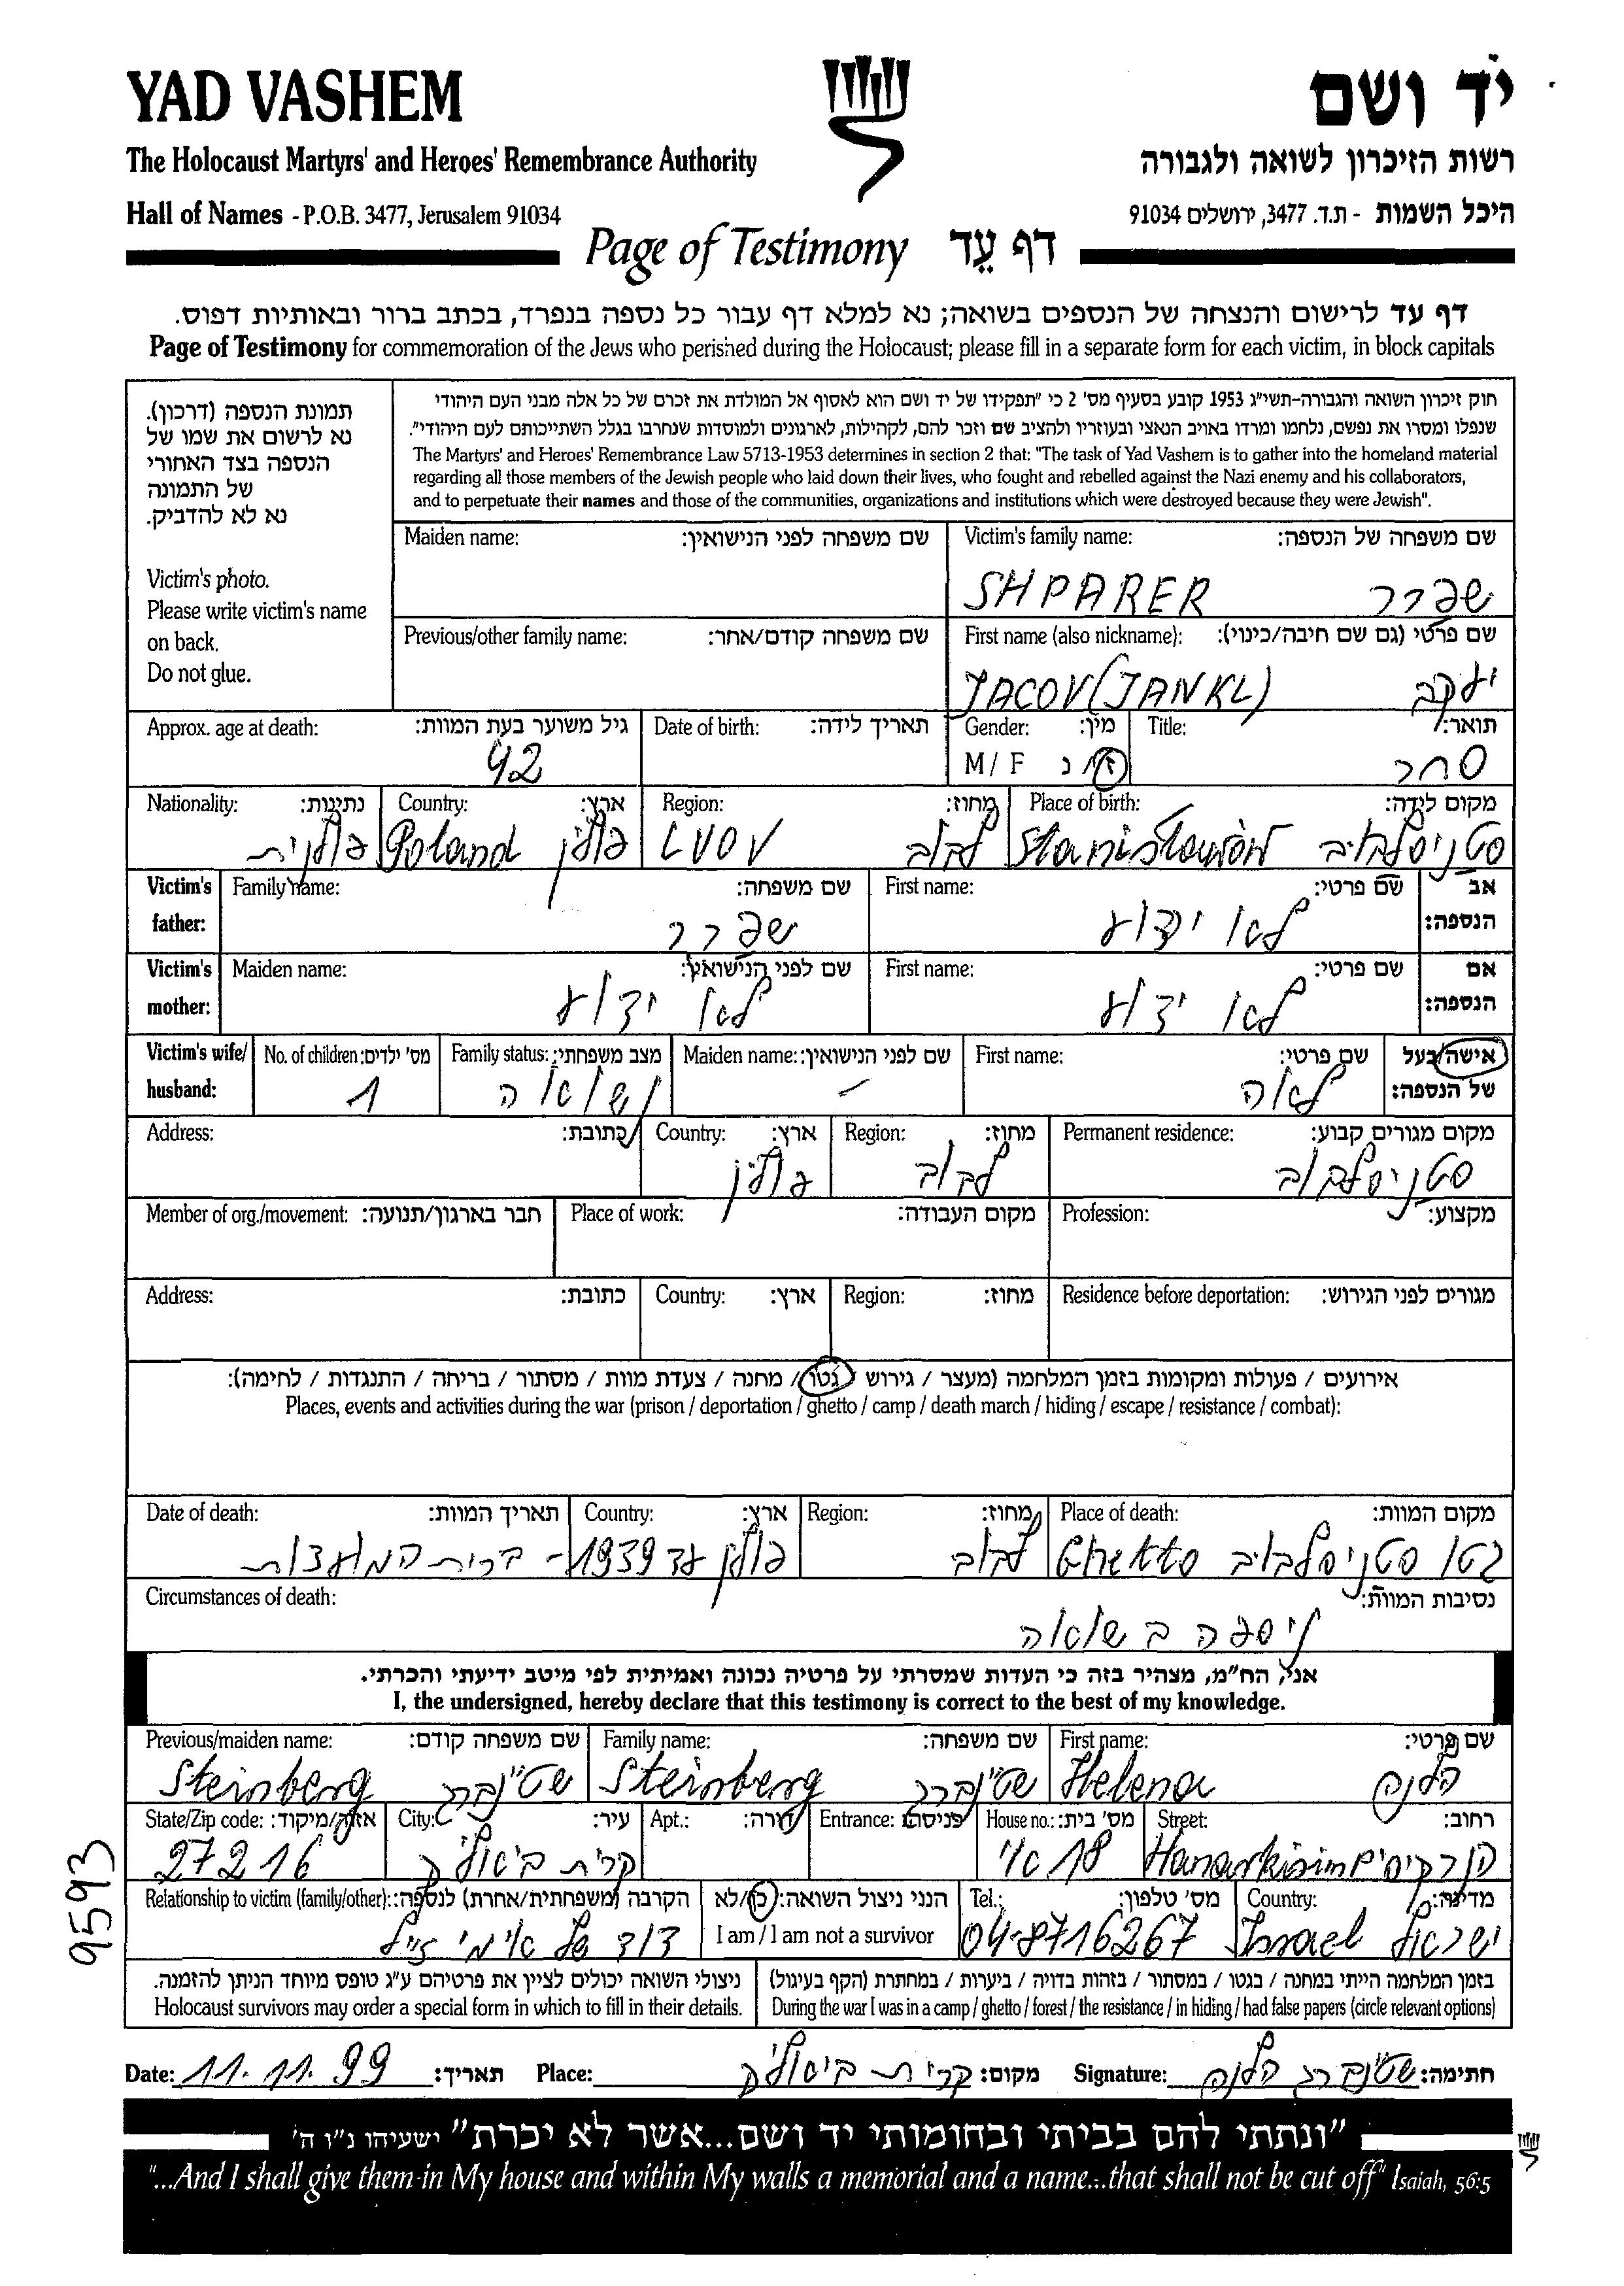 YAD VASHEM
יד ושם
The Holocaust Martyrs' and Heroes' Remembrance Authority
רשות הזיכרון לשואה ולגבורה
Hall of Names - P.O.B. 3477, Jerusalem 91034
היכל השמות - ת.ד. 3477, ירושלים 91034
Page of Testimony דף עד
דף עד לרישום והנצחה של הנספים בשואה; נא למלא דף עבור כל נספה בנפרד, בכתב ברור ובאותיות דפוס.
Page of Testimony for commemoration of the Jews who perished during the Holocaust; please fill in a separate form for each victim, in block capitals
תמונת הנספה (דרכון).
נא לרשום את שמו של
הנספה בצד האחורי
של התמונה
נא לא להדביק.
Victim's photo.
Please write victim's name
on back.
Do not glue.
חוק זיכרון השואה והגבורה-תשי"ג 1953 קובע בסעיף מס' 2 כי "תפקידו של יד ושם הוא לאסוף אל המולדת את זכרם של כל אלה מבני העם היהודי
שנפלו ומסרו את נפשם, נלחמו ומרדו באויב הנאצי ובעוזריו ולהציב שם וזכר להם, לקהילות, לארגונים ולמוסדות שנחרבו בגלל השתייכותם לעם היהודי".
The Martyrs' and Heroes' Remembrance Law 5713-1953 determines in section 2 that: "The task of Yad Vashem is to gather into the homeland material
regarding all those members of the Jewish people who laid down their lives, who fought and rebelled against the Nazi enemy and his collaborators,
and to perpetuate their names and those of the communities, organizations and institutions which were destroyed because they were Jewish".
Maiden name: שם משפחה לפני הנישואין:
Victim's family name: שם משפחה של הנספה:
SHPARER שפרר
Previous/other family name: שם משפחה קודם/אחר:
First name (also nickname): שם פרטי (גם שם חיבה/כינוי):
JACOV (JANKL) יעקב
Approx. age at death: גיל משוער בעת המוות:
42
Date of birth: תאריך לידה:
Gender: מין:
M / F ז/נ
Title: תואר:
סוחר
Nationality: נתינות:
פולנית
Country: ארץ:
Poland פולין
Region: מחוז:
LVOV לבוב
Place of birth: מקום לידה:
Stanisławów סטניסלבוב
Victim's father: אב הנספה:
Family name: שם משפחה:
שפרר
First name: שם פרטי:
לא ידוע
Victim's mother: אם הנספה:
Maiden name: שם לפני הנישואין:
לא ידוע
First name: שם פרטי:
לא ידוע
Victim's wife/ husband: אישה/בעל של הנספה:
No. of children: מס' ילדים:
1
Family status: מצב משפחתי:
נשואה
Maiden name: שם לפני הנישואין:
-
First name: שם פרטי:
לאה
Address: כתובת:
Country: ארץ:
פולין
Region: מחוז:
לבוב
Permanent residence: מקום מגורים קבוע:
סטניסלבוב
Member of org./movement: חבר בארגון/תנועה:
Place of work: מקום העבודה:
Profession: מקצוע:
Address: כתובת:
Country: ארץ:
Region: מחוז:
Residence before deportation: מגורים לפני הגירוש:
אירועים / פעולות ומקומות בזמן המלחמה (מעצר / גירוש / גטו / מחנה / צעדת מוות / מסתור / בריחה / התנגדות / לחימה):
Places, events and activities during the war (prison / deportation / ghetto / camp / death march / hiding / escape / resistance / combat):
Date of death: תאריך המוות:
Country: ארץ:
פולין עד 1939 - ברית המועצות
Region: מחוז:
לבוב
Place of death: מקום המוות:
Ghetto גטו סטניסלבוב
Circumstances of death: נסיבות המוות:
ניספה בשואה
אני, הח"מ, מצהיר בזה כי העדות שמסרתי על פרטיה נכונה ואמיתית לפי מיטב ידיעתי והכרתי.
I, the undersigned, hereby declare that this testimony is correct to the best of my knowledge.
Previous/maiden name: שם משפחה קודם:
Steinberg שטינברג
Family name: שם משפחה:
Steinberg שטינברג
First name: שם פרטי:
Helena הלנה
State/Zip code: אזור/מיקוד:
27216
City: עיר:
קרית ביאליק
Apt.: דירה:
Entrance: כניסה:
House no.: מס' בית:
18 א'
Street: רחוב:
Hanarkisim הנרקיסים
Relationship to victim (family/other): הקרבה (משפחתית/אחרת) לנספה:
דוד של אימי ז"ל
הנני ניצול השואה: כן/לא
I am / I am not a survivor
Tel.: מס' טלפון:
04-8716267
Country: מדינה:
Israel ישראל
ניצולי השואה יכולים לציין את פרטיהם ע"ג טופס מיוחד הניתן להזמנה.
Holocaust survivors may order a special form in which to fill in their details.
בזמן המלחמה הייתי במחנה / בגטו / במסתור / בזהות בדויה / ביערות / במחתרת (הקף בעיגול)
During the war I was in a camp / ghetto / forest / the resistance / in hiding / had false papers (circle relevant options)
Date: 11.11.99 תאריך:
Place: קרית ביאליק מקום:
Signature: שטינברג הלנה חתימה:
"ונתתי להם בביתי ובחומותי יד ושם...אשר לא יכרת" ישעיהו נ"ו ה'
"...And I shall give them in My house and within My walls a memorial and a name...that shall not be cut off" Isaiah, 56:5
9593